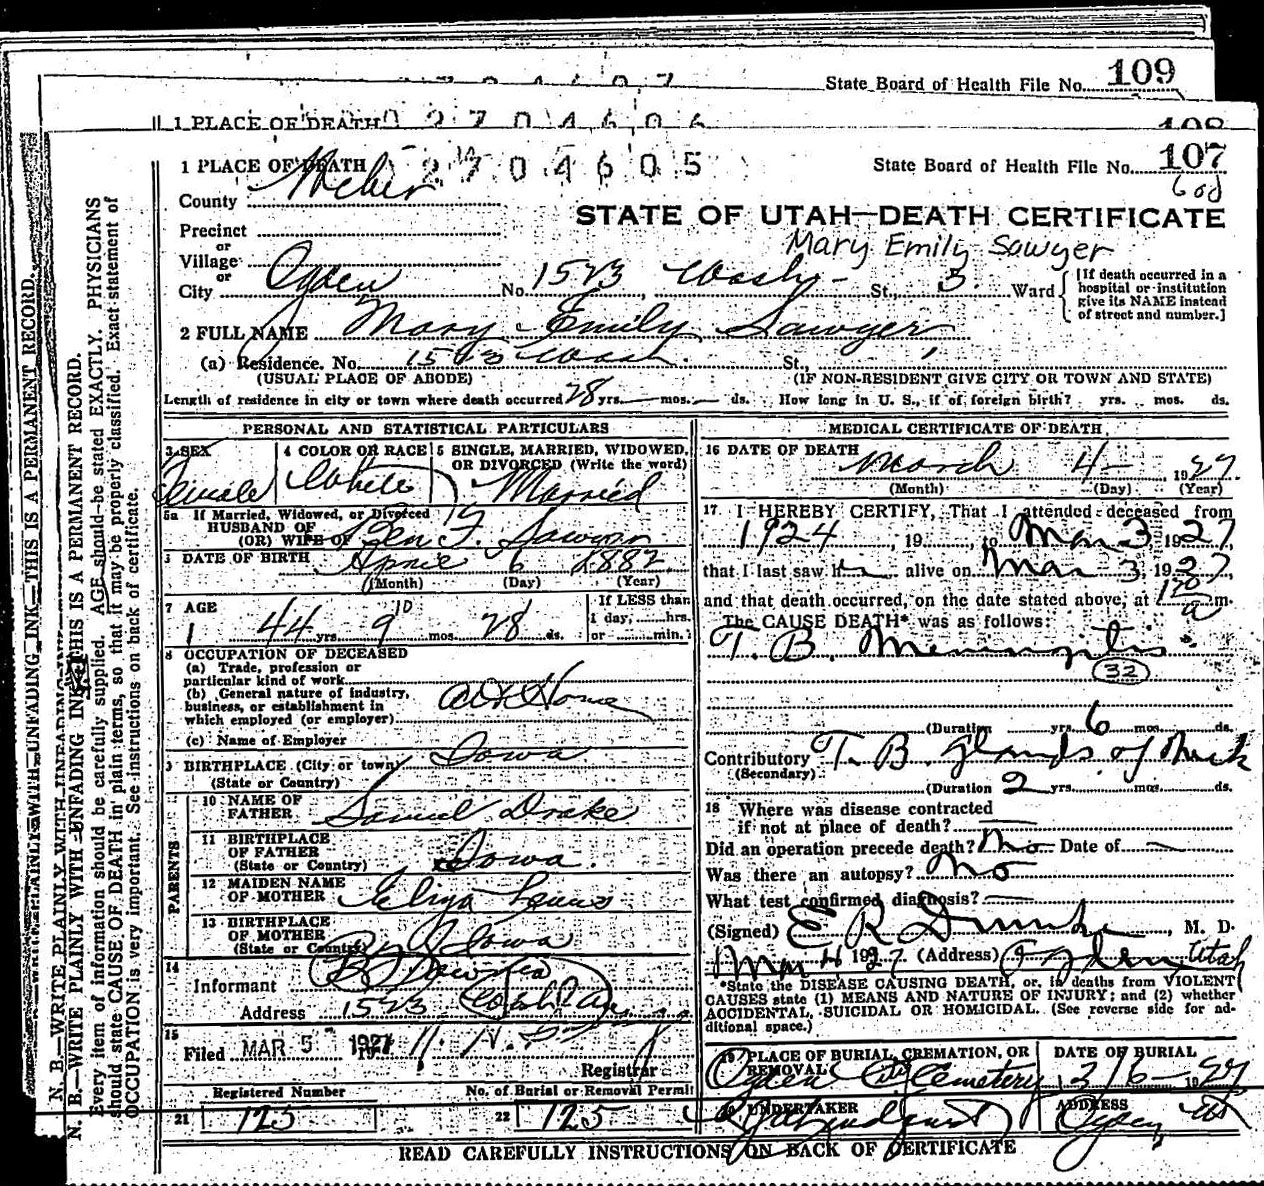 State Board of Health File No. 109
1 PLACE OF DEATH 2704606 108
1 PLACE OF DEATH 2704605 State Board of Health File No. 107
County Weber
STATE OF UTAH—DEATH CERTIFICATE
Precinct
Mary Emily Sawyer
or
Village
or
City Ogden No. 1523 Wash- St., 3 Ward [If death occurred in a hospital or institution give its NAME instead of street and number.]
2 FULL NAME Mary Emily Sawyer
(a) Residence. No. 1523 Wash. St.,
(USUAL PLACE OF ABODE) (IF NON-RESIDENT GIVE CITY OR TOWN AND STATE)
Length of residence in city or town where death occurred 28 yrs. mos. ds. How long in U. S., if of foreign birth? yrs. mos. ds.
PERSONAL AND STATISTICAL PARTICULARS
3 SEX Female
4 COLOR OR RACE White
5 SINGLE, MARRIED, WIDOWED, OR DIVORCED (Write the word) Married
5a If Married, Widowed, or Divorced
HUSBAND OF
(OR) WIFE OF Ben F. Sawyer
DATE OF BIRTH April 6 1882
(Month) (Day) (Year)
7 AGE 44 yrs. 9 10 mos. 28 ds.
If LESS than 1 day, hrs. or min.
8 OCCUPATION OF DECEASED
(a) Trade, profession or particular kind of work
(b) General nature of industry, business, or establishment in which employed (or employer) At Home
(c) Name of Employer
9 BIRTHPLACE (City or town) Iowa
(State or Country)
PARENTS
10 NAME OF FATHER Samuel Drake
11 BIRTHPLACE OF FATHER (State or Country) Iowa
12 MAIDEN NAME OF MOTHER Eliza Lewis
13 BIRTHPLACE OF MOTHER (State or Country) Iowa
14
Informant
Address 1523 Wash Av
15
Filed MAR 5 1927
Registrar
Registered Number No. of Burial or Removal Permit
21 125 22 125
MEDICAL CERTIFICATE OF DEATH
16 DATE OF DEATH March 4- 1927
(Month) (Day) (Year)
17 I HEREBY CERTIFY, That I attended deceased from
1924, 19, to Mar 3 1927,
that I last saw her alive on Mar 3, 1927,
and that death occurred, on the date stated above, at 1 a m.
The CAUSE DEATH* was as follows:
T. B. Meningitis
32
(Duration yrs. 6 mos. ds.
Contributory T. B. Glands of Neck
(Secondary)
(Duration 2 yrs. mos. ds.
18 Where was disease contracted
if not at place of death?
Did an operation precede death? No Date of
Was there an autopsy? No
What test confirmed diagnosis?
(Signed) E R , M. D.
Mar 4 1927. (Address) Ogden Utah
*State the DISEASE CAUSING DEATH, or, in deaths from VIOLENT
CAUSES state (1) MEANS AND NATURE OF INJURY; and (2) whether
ACCIDENTAL, SUICIDAL OR HOMICIDAL. (See reverse side for ad-
ditional space.)
19 PLACE OF BURIAL, CREMATION, OR REMOVAL Ogden City Cemetery
DATE OF BURIAL 3/6- 1927
20 UNDERTAKER
ADDRESS Ogden Ut
READ CAREFULLY INSTRUCTIONS ON BACK OF CERTIFICATE
N. B.—WRITE PLAINLY WITH UNFADING INK—THIS IS A PERMANENT RECORD.
N. B.—WRITE PLAINLY WITH UNFADING INK—THIS IS A PERMANENT RECORD.
Every item of information should be carefully supplied. AGE should be stated EXACTLY. PHYSICIANS
should state CAUSE OF DEATH in plain terms, so that it may be properly classified. Exact statement of
OCCUPATION is very important. See instructions on back of certificate.